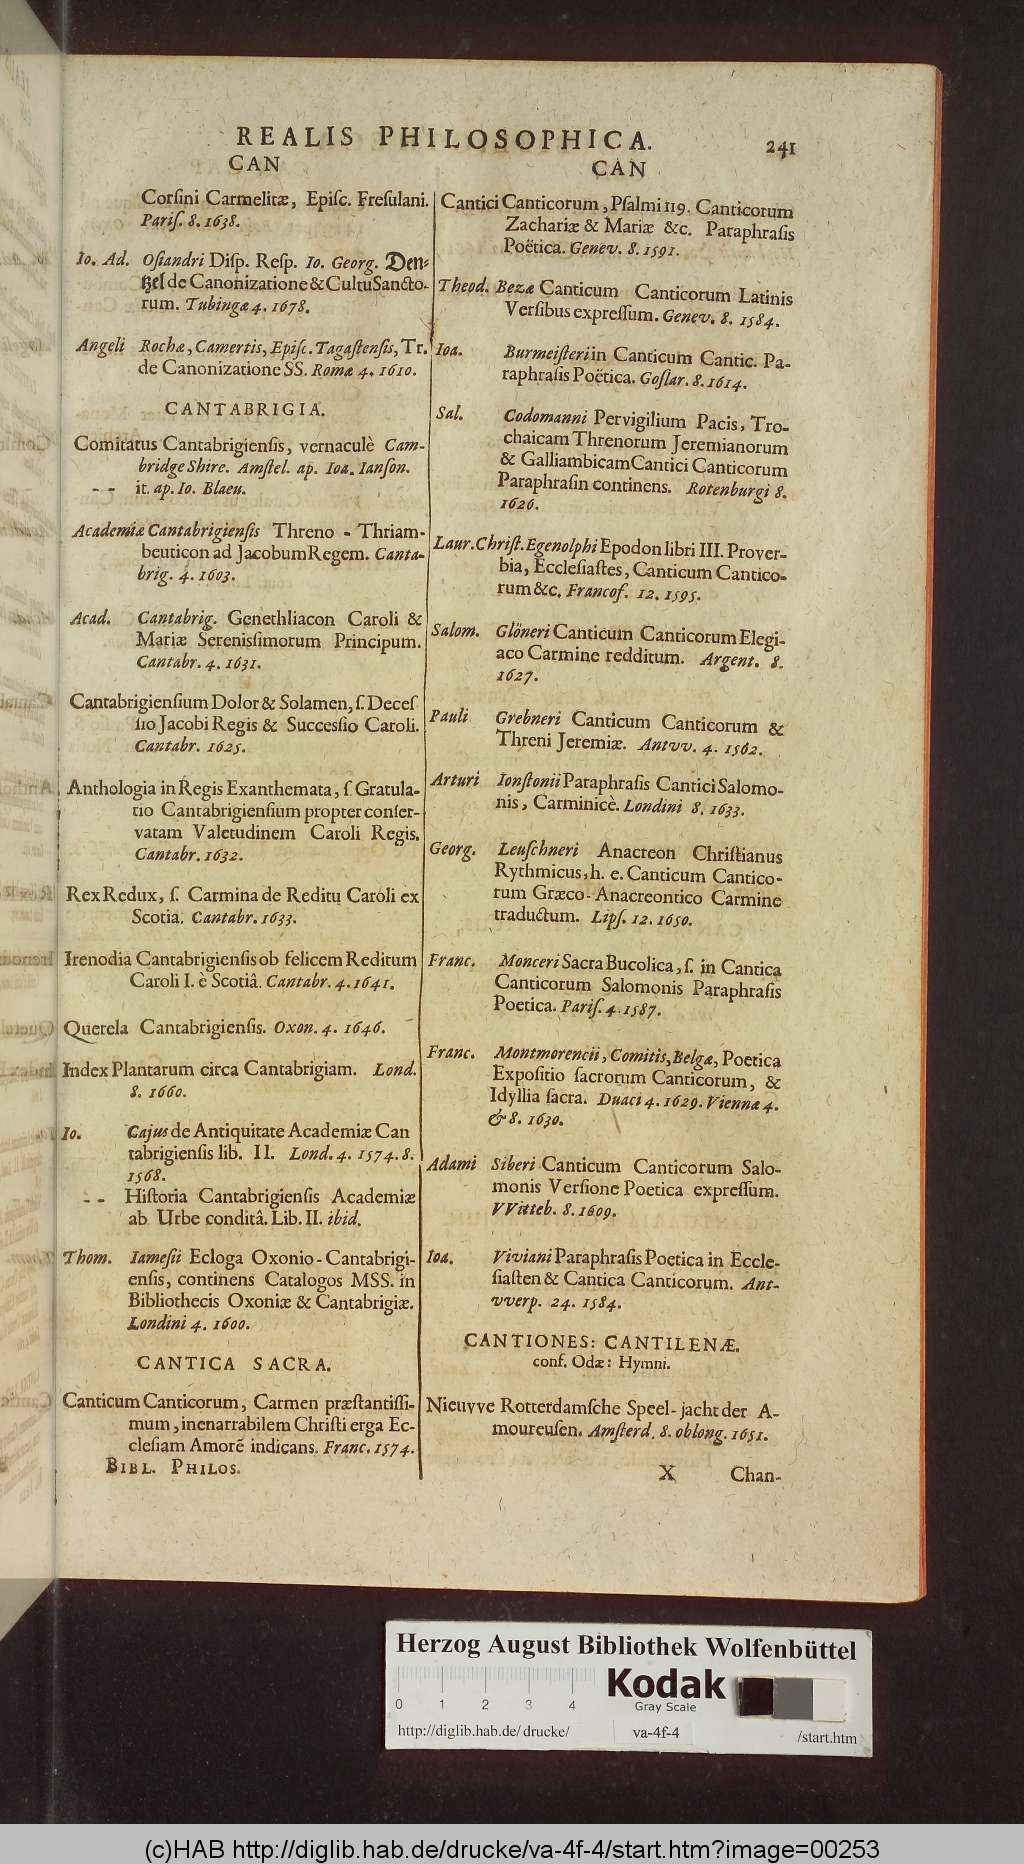 REALIS PHILOSOPHICA. 241
CAN CAN
Corsini Carmelitæ, Episc. Fresulani.
Paris. 8. 1638.
Io. Ad. Osiandri Disp. Resp. Io. Georg. Den⸗
tzel de Canonizatione & Cultu Sancto-
rum. Tubingæ 4. 1678.
Angeli Rochæ, Camertis, Episc. Tagastensis, Tr.
de Canonizatione SS. Romæ 4. 1610.
CANTABRIGIA.
Comitatus Cantabrigiensis, vernaculè Cam-
bridge Shire. Amstel. ap. Ioa. Ianson.
- - it. ap. Io. Blaeu.
Academiæ Cantabrigiensis Threno - Thriam-
beuticon ad Jacobum Regem. Canta-
brig. 4. 1603.
Acad. Cantabrig. Genethliacon Caroli &
Mariæ Serenissimorum Principum.
Cantabr. 4. 1631.
Cantabrigiensium Dolor & Solamen, s. Deces
sio Jacobi Regis & Successio Caroli.
Cantabr. 1625.
Anthologia in Regis Exanthemata, s. Gratula-
tio Cantabrigiensium propter conser-
vatam Valetudinem Caroli Regis.
Cantabr. 1632.
Rex Redux, s. Carmina de Reditu Caroli ex
Scotia. Cantabr. 1633.
Irenodia Cantabrigiensis ob felicem Reditum
Caroli I. è Scotiâ. Cantabr. 4. 1641.
Querela Cantabrigiensis. Oxon. 4. 1646.
Index Plantarum circa Cantabrigiam. Lond.
8. 1660.
Io. Cajus de Antiquitate Academiæ Can
tabrigiensis lib. II. Lond. 4. 1574. 8.
1568.
- - Historia Cantabrigiensis Academiæ
ab Urbe conditâ. Lib. II. ibid.
Thom. Iamesii Ecloga Oxonio-Cantabrigi-
ensis, continens Catalogos MSS. in
Bibliothecis Oxoniæ & Cantabrigiæ.
Londini 4. 1600.
CANTICA SACRA.
Canticum Canticorum, Carmen præstantissi-
mum, inenarrabilem Christi erga Ec-
clesiam Amorẽ indicans. Franc. 1574.
BIBL. PHILOS.
Cantici Canticorum, Psalmi 119. Canticorum
Zachariæ & Mariæ &c. Paraphrasis
Poëtica. Genev. 8. 1591.
Theod. Bezæ Canticum Canticorum Latinis
Versibus expressum. Genev. 8. 1584.
Ioa. Burmeisteri in Canticum Cantic. Pa-
raphrasis Poëtica. Goslar. 8. 1614.
Sal. Codomanni Pervigilium Pacis, Tro-
chaicam Threnorum Jeremianorum
& Galliambicam Cantici Canticorum
Paraphrasin continens. Rotenburgi 8.
1626.
Laur. Christ. Egenolphi Epodon libri III. Prover-
bia, Ecclesiastes, Canticum Cantico-
rum &c. Francof. 12. 1595.
Salom. Glöneri Canticum Canticorum Elegi-
aco Carmine redditum. Argent. 8.
1627.
Pauli Grebneri Canticum Canticorum &
Threni Jeremiæ. Antvv. 4. 1562.
Arturi Ionstonii Paraphrasis Cantici Salomo-
nis, Carminicè. Londini 8. 1633.
Georg. Leuschneri Anacreon Christianus
Rythmicus, h. e. Canticum Cantico-
rum Græco-Anacreontico Carmine
traductum. Lips. 12. 1650.
Franc. Monceri Sacra Bucolica, s. in Cantica
Canticorum Salomonis Paraphrasis
Poetica. Paris. 4. 1587.
Franc. Montmorencii, Comitis, Belgæ, Poetica
Expositio sacrorum Canticorum, &
Idyllia sacra. Duaci 4. 1629. Viennæ 4.
& 8. 1630.
Adami Siberi Canticum Canticorum Salo-
monis Versione Poetica expressum.
VVitteb. 8. 1609.
Ioa. Viviani Paraphrasis Poetica in Eccle-
siasten & Cantica Canticorum. Ant-
vverp. 24. 1584.
CANTIONES: CANTILENÆ.
conf. Odæ: Hymni.
Nieuvve Rotterdamsche Speel-jacht der A-
moureusen. Amsterd. 8. oblong. 1651.
X Chan-
Herzog August Bibliothek Wolfenbüttel
0 1 2 3 4
Kodak
Gray Scale
http://diglib.hab.de/drucke/ va-4f-4 /start.htm
(c)HAB http://diglib.hab.de/drucke/va-4f-4/start.htm?image=00253